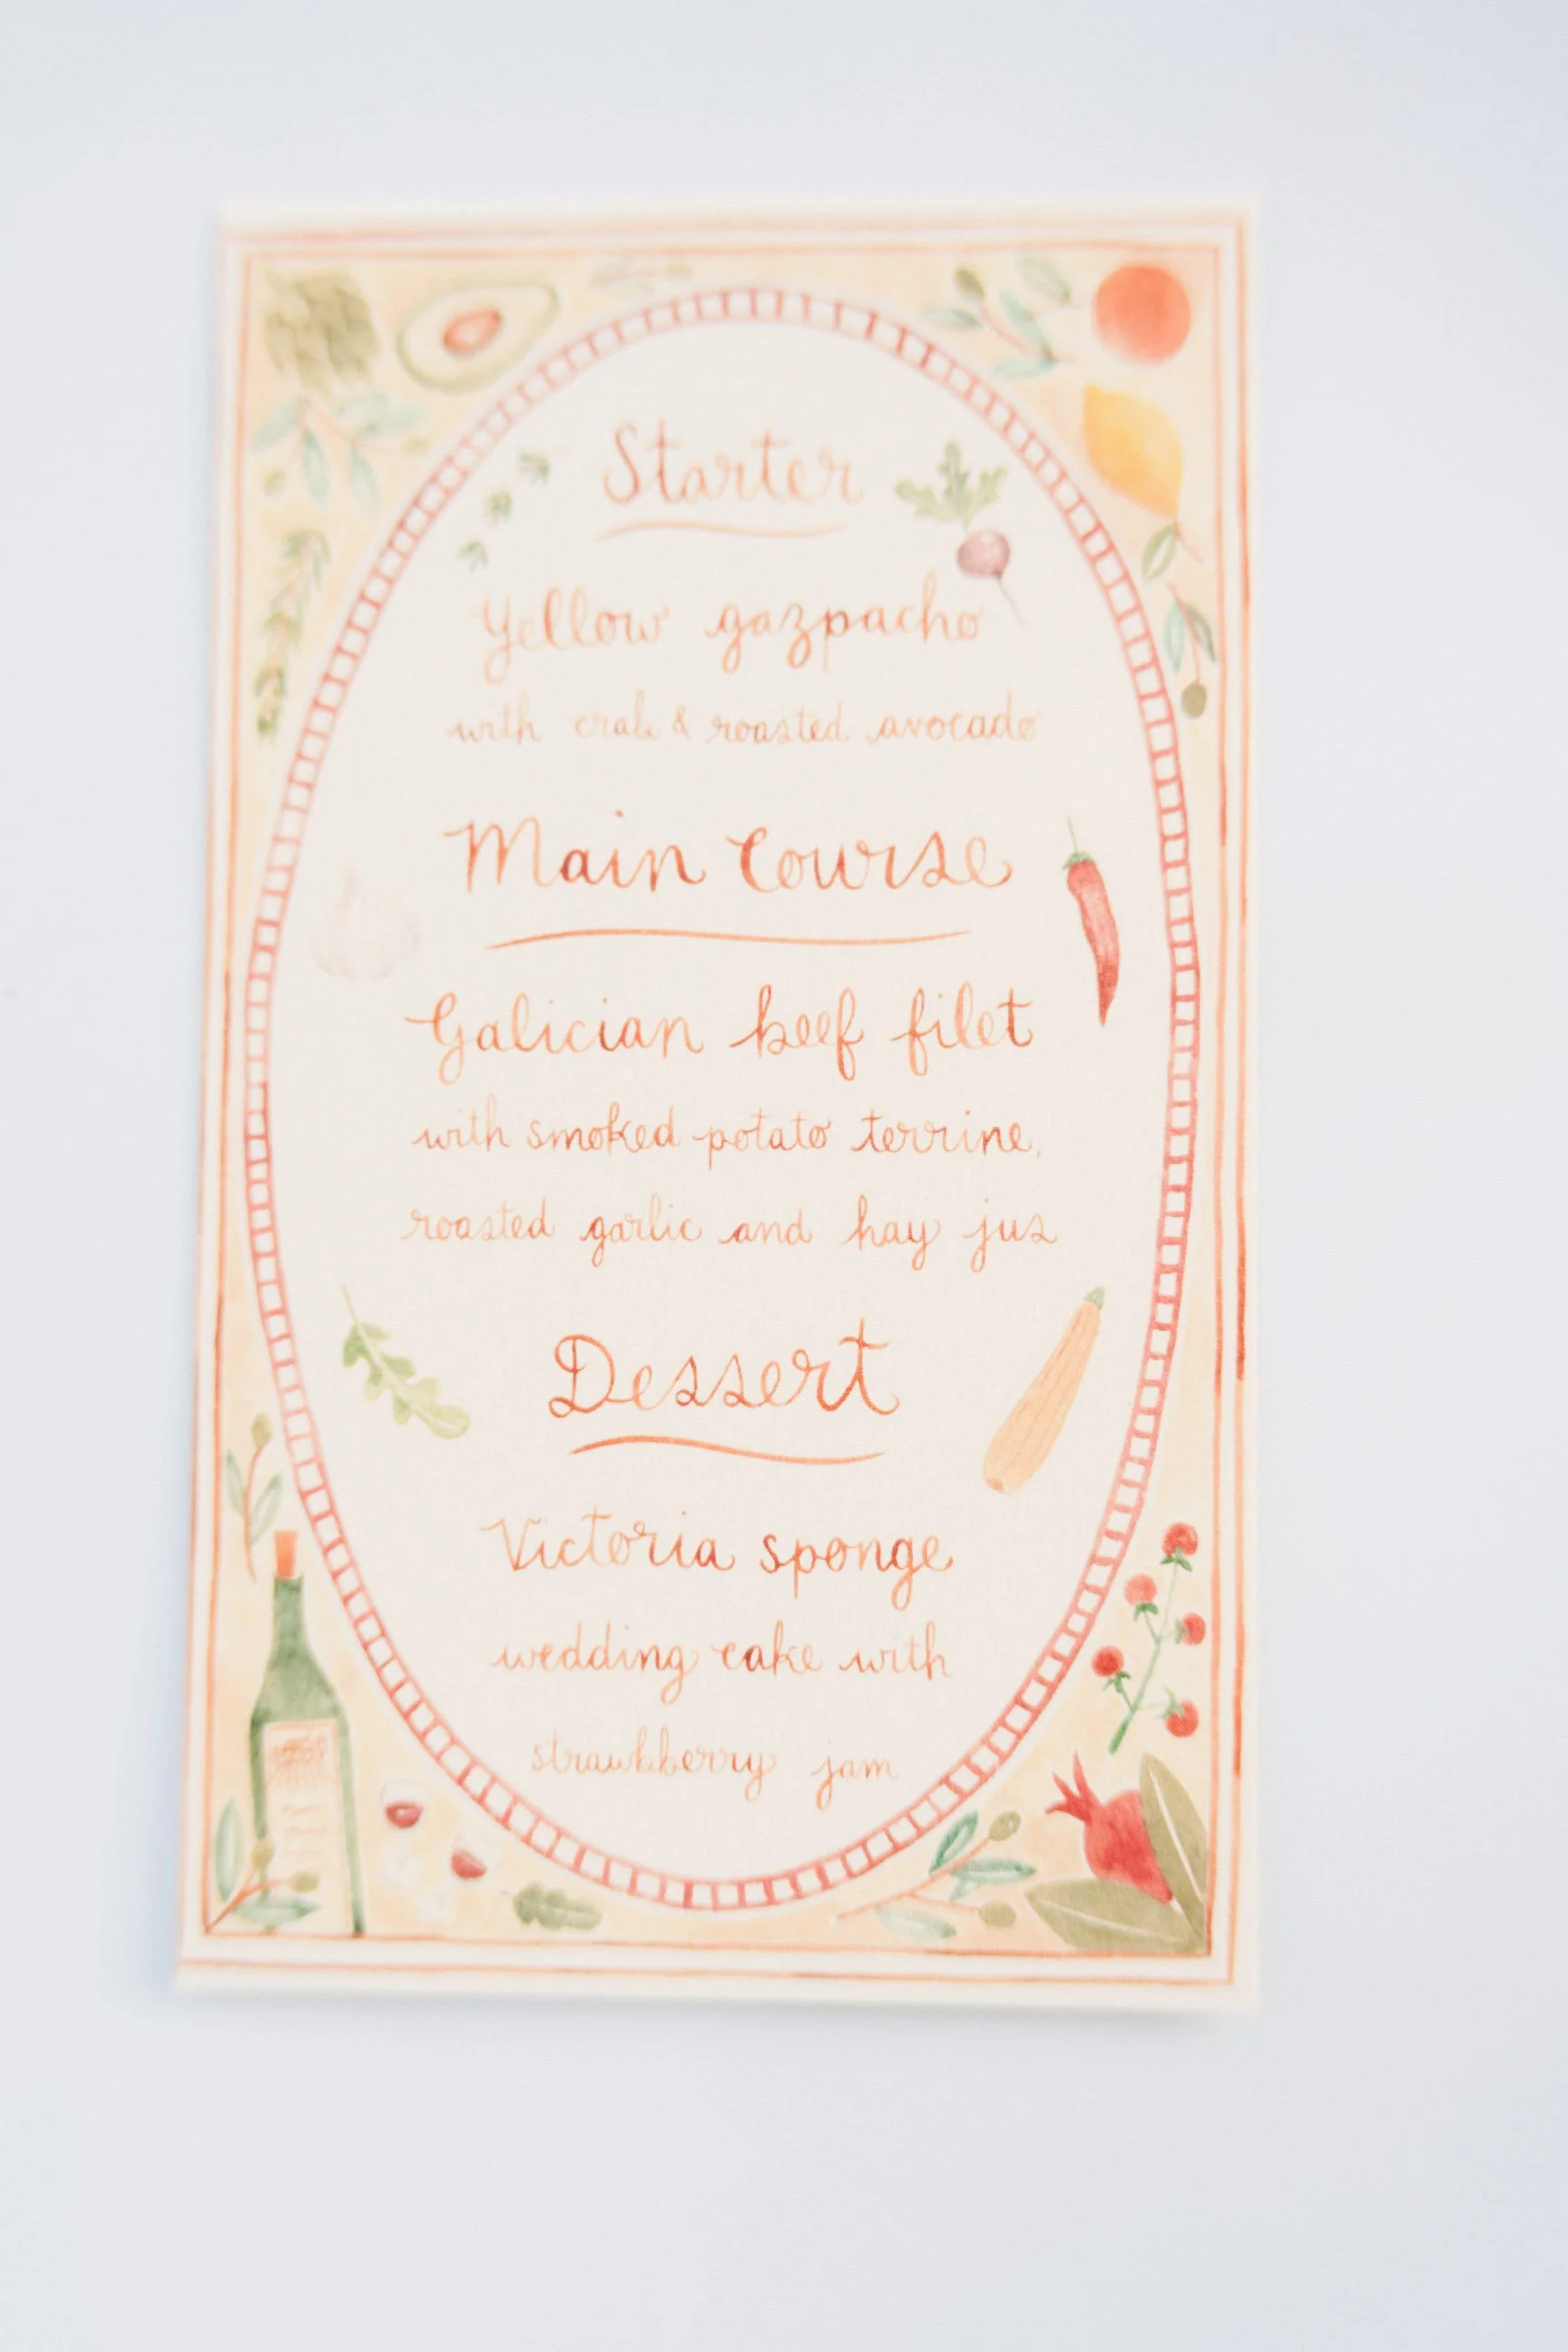 Starter
Yellow gazpacho
with crab & roasted avocado
Main Course
Galician beef filet
with smoked potato terrine,
roasted garlic and hay jus
Dessert
Victoria sponge
wedding cake with
strawbberry jam